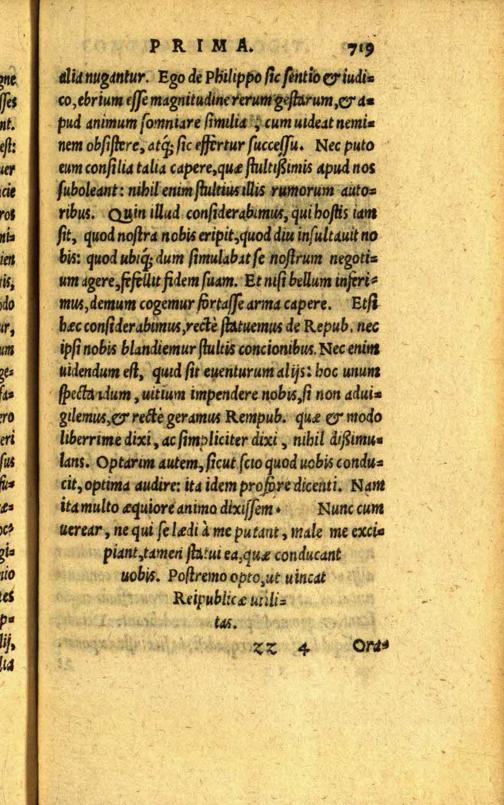 PRIMA. 719
alia nugantur. Ego de Philippo sic sentio & iudi=
co, ebrium esse magnitudine rerum gestarum, & a=
pud animum somniare similia, cum uideat nemi=
nem obsistere, atq; sic effertur successu. Nec puto
eum consilia talia capere, quæ stultißimis apud nos
suboleant: nihil enim stultius illis rumorum auto=
ribus. Quin illud considerabimus, qui hostis iam
sit, quod nostra nobis eripit, quod diu insultauit no
bis: quod ubiq; dum simulabat se nostrum negoti=
um agere, fefellit fidem suam. Et nisi bellum inferi=
mus, demum cogemur fortasse arma capere. Etsi
hæc considerabimus, rectè statuemus de Repub. nec
ipsi nobis blandiemur stultis concionibus. Nec enim
uidendum est, quid sit euenturum alijs: hoc unum
spectandum, uitium impendere nobis, si non adui=
gilemus, & rectè geramus Rempub. quæ & modo
liberrime dixi, ac simpliciter dixi, nihil dißimu=
lans. Optarim autem, sicut scio quod uobis condu=
cit, optima audire: ita idem prospre dicenti. Nam
ita multo æquiore animo dixissem. Nunc cum
uerear, ne qui se lædi à me putant, male me exci=
piant, tamen statui ea, quæ conducant
uobis. Postremo opto, ut uincat
Reipublicæ utili=
tas.
zz 4 Ora=
gne
sses
nt.
est:
uer
cie
ros
ni=
ien
nis,
odo
ur,
um
ge=
fa=
ero
eri
sus
fu=
æ=
hoc
gi=
nio
tes
p=
lij,
lia